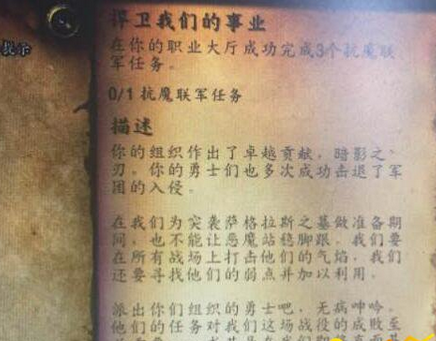 提示
捍卫我们的事业
在你的职业大厅成功完成3个抗魔联
军任务。
0/1 抗魔联军任务
描述
你的组织作出了卓越贡献，暗影之
刃。你的勇士们也多次成功击退了军
团的入侵。
在我们为突袭萨格拉斯之墓做准备期
间，也不能让恶魔站稳脚跟。我们要
在所有战场上打击他们的气焰，我们
还要寻找他们的弱点并加以利用。
派出你们组织的勇士吧，无病呻吟。
他们的任务对我们这场战役的成败至